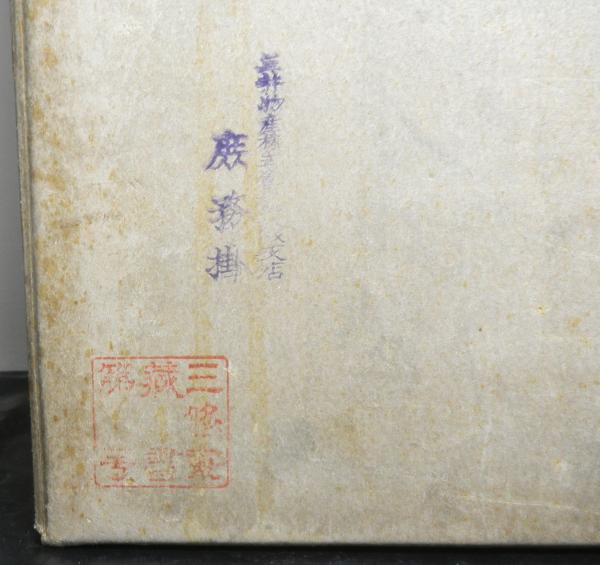 三井物産株式會社 支店
庶務掛
三 家
藏書
第 号